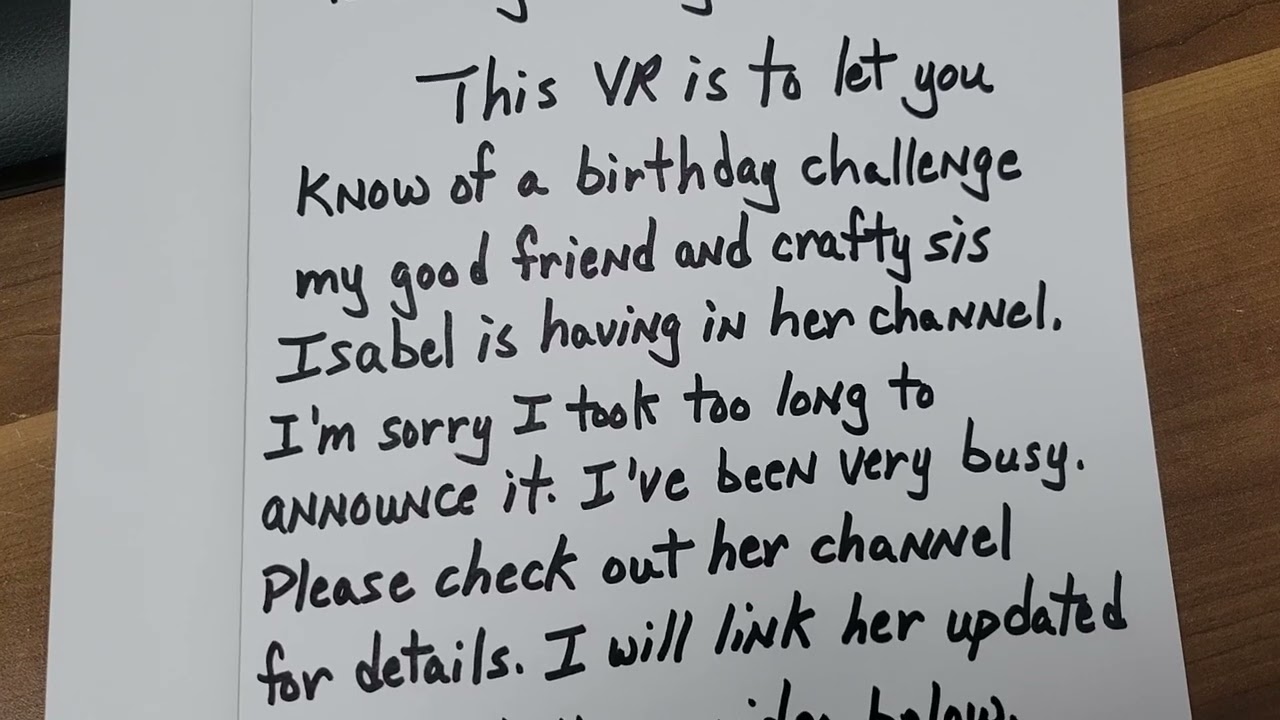 This VR is to let you
know of a birthday challenge
my good friend and crafty sis
Isabel is having in her channel.
I'm sorry I took too long to
announce it. I've been very busy.
Please check out her channel
for details. I will link her updated
below.